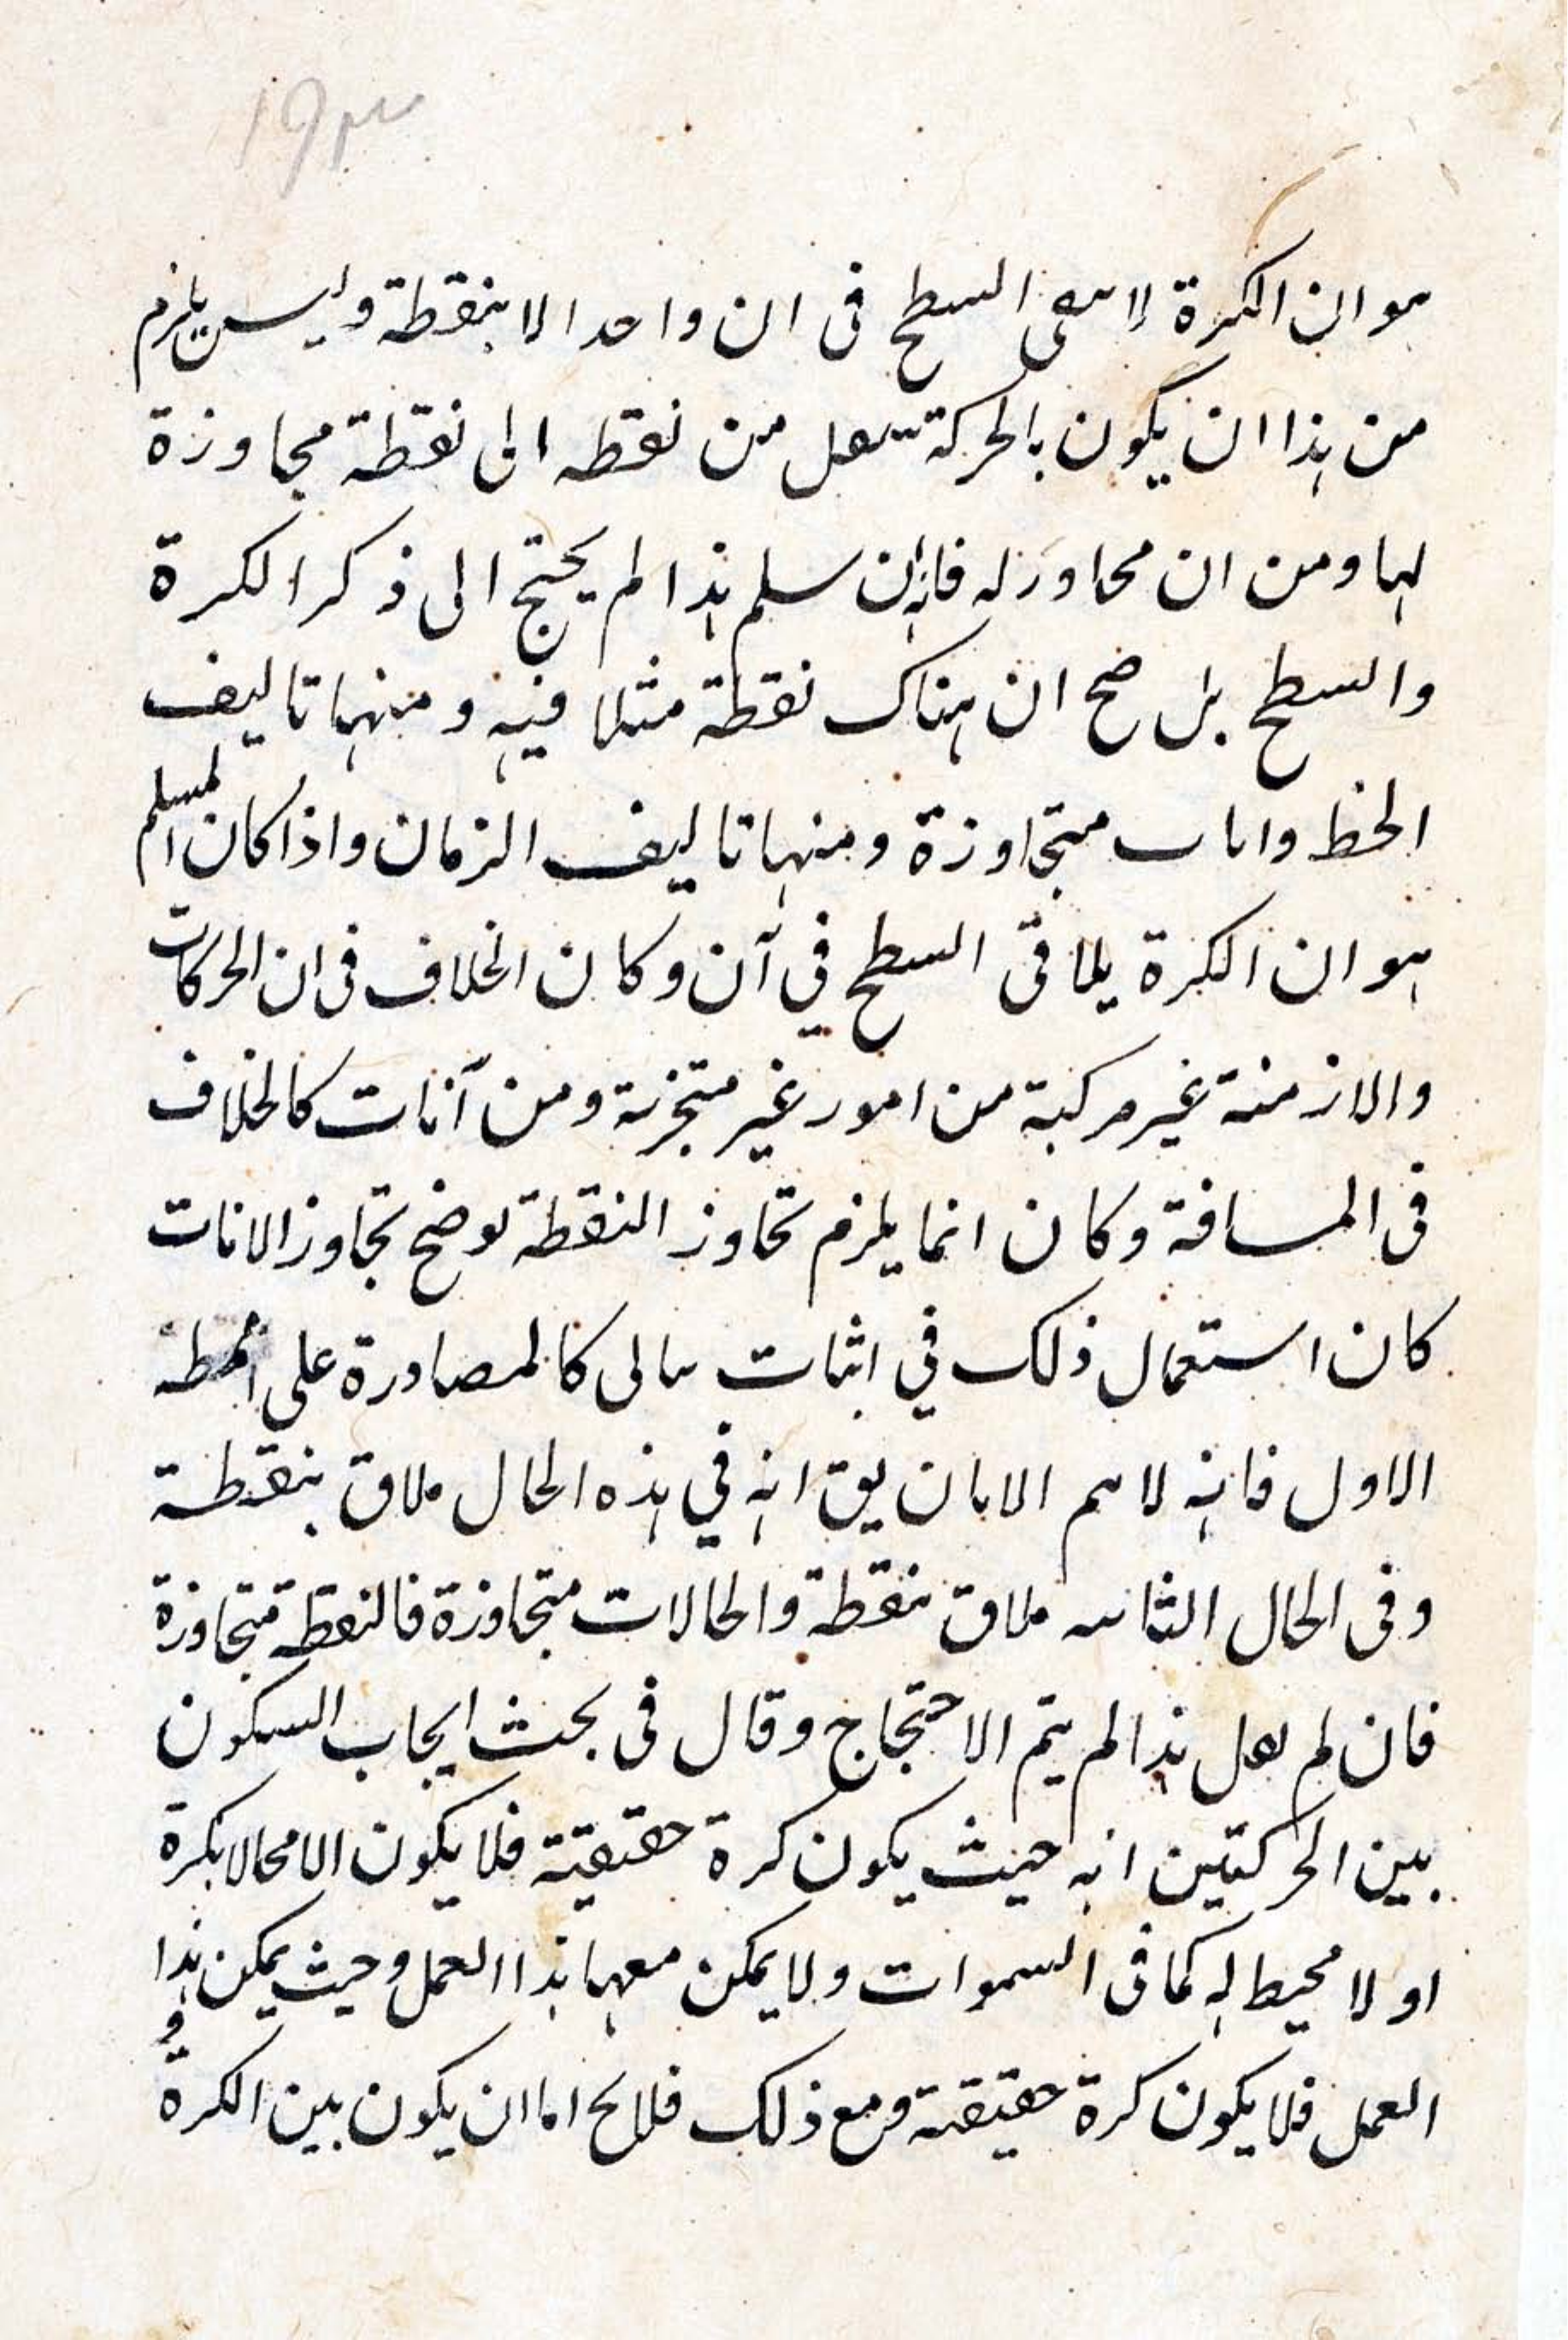 ١٩٣
هو ان الكرة لا السطح فى ان واحد الا بنقطة وليس يلزم
من هذا ان يكون بالحركة من نقطه الى نقطة مجاوزة
لها ومن ان محاورله فانه ان سلم هذا لم يحتج الى ذكر الكرة
والسطح بل صح ان هناك نقطة مثلا فيه ومنها تاليف
الخط متجاوزة ومنها تاليف الزمان واذا كان المسلم
هو ان الكرة يلاقى السطح في آن وكان الخلاف فى ان الحركات
والازمنة غير مركبة من امور غير متجزئة ومن آنات كالخلاف
فى المسافة وكان انما يلزم تحاوز النقطة لوضح تجاوز الانات
كان استعمال ذلك في اثبات كالمصادرة على
الاول فانه لا الا يق انه في هذه الحال ملاق بنقطة
وفى الحال ملاق بنقطة والحالات متجاوزة فالنقطه متجاوزة
فان لم هذا لم يتم الاحتجاج وقال فى بحث ايجاب السكون
بين الحركتين انه حيث يكون كرة حقيقية فلا يكون الا محالا بكرة
او لا محيط له كما فى السموات ولا يمكن معها هذا العمل وحيث يمكن هذا
العمل فلا يكون كرة حقيقية ومع ذلك فلا يخ اما ان يكون بين الكرة و